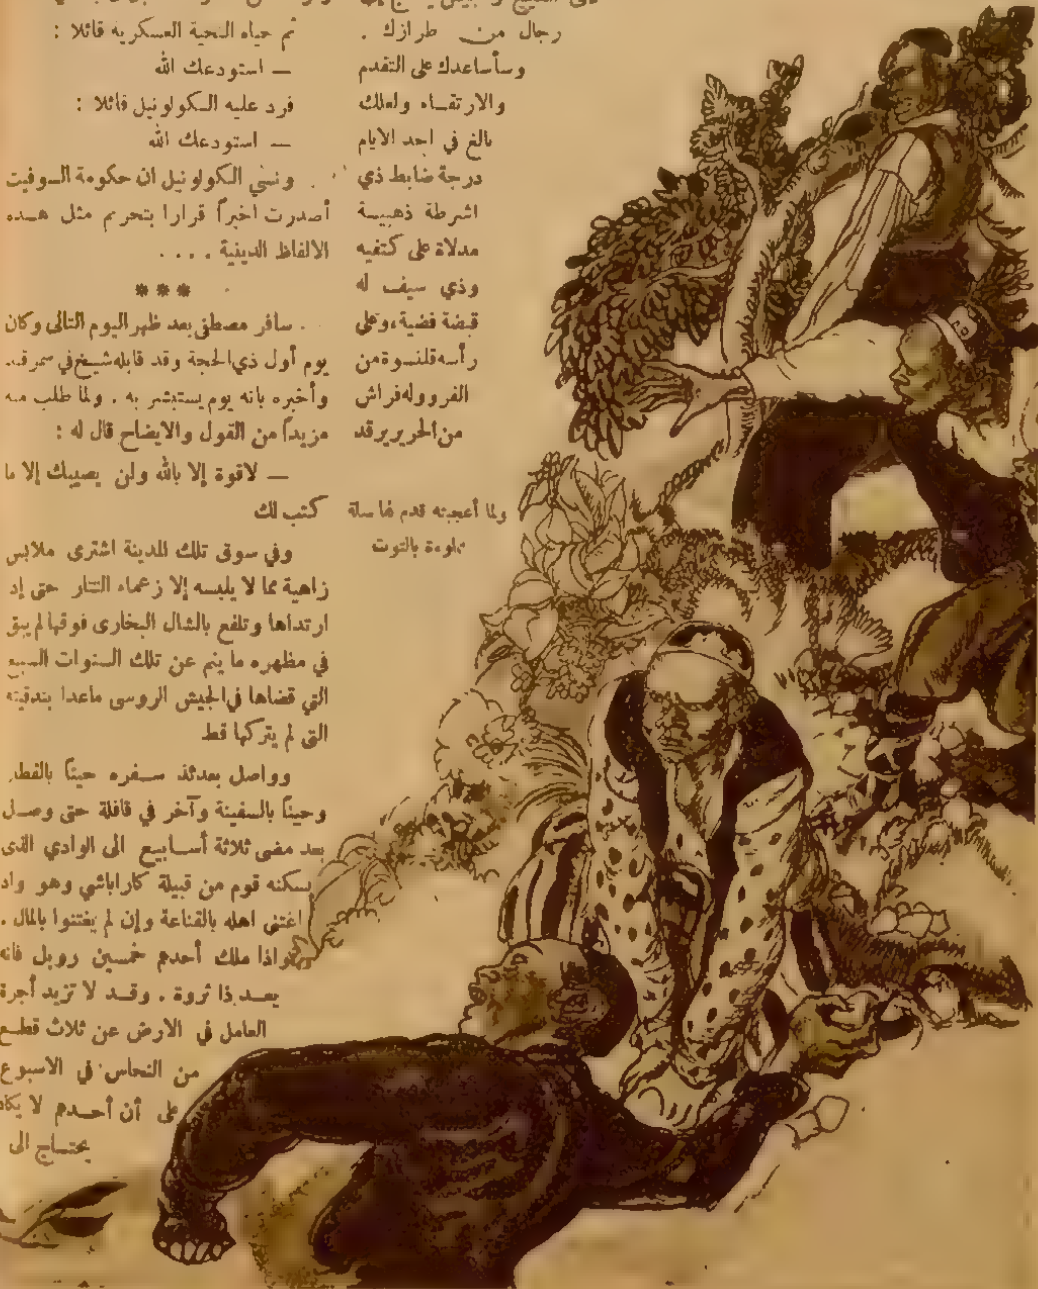 رجال من طرازك .
وسأساعدك على التقدم
والارتقاء ولعلك
بالغ في احد الايام
درجة ضابط ذي
اشرطة ذهبية
مدلاة على كتفيه
وذي سيف له
قبضة فضية ، وعلى
رأسه قلنسوة من
الفرو وله فراش
من الحرير يرقد
ولما أعجبته قدم لها سلة
مملوءة بالتوت
ثم حياه التحية العسكرية قائلا :
— استودعك الله
فرد عليه الكولونيل قائلا :
— استودعك الله
ونسي الكولونيل ان حكومة السوفيت
أصدرت اخيراً قرارا بتحريم مثل هذه
الالفاظ الدينية . . . .
***
سافر مصطفى بعد ظهر اليوم التالى وكان
يوم أول ذي الحجة وقد قابله شيخ في سمرقند
وأخبره بانه يوم يستبشر به . ولما طلب منه
مزيداً من القول والايضاح قال له :
— لاقوة إلا بالله ولن يصيبك إلا ما
كتب لك
وفي سوق تلك المدينة اشترى ملابس
زاهية مما لا يلبسه إلا زعماء التتار حتى إذ
ارتداها وتلفع بالشال البخارى فوقها لم يبق
في مظهره ما ينم عن تلك السنوات السبع
التي قضاها في الجيش الروسى ماعدا بندقيته
التى لم يتركها قط
وواصل بعدئذ سفره حيناً بالقطار
وحيناً بالسفينة وآخر في قافلة حتى وصل
بعد مضى ثلاثة أسابيع الى الوادي الذى
يسكنه قوم من قبيلة كاراباشي وهو واد
اغتنى اهله بالقناعة وإن لم يغتنوا بالمال .
واذا ملك أحدهم خمسين روبل فانه
يعد ذا ثروة . وقد لا تزيد أجرة
العامل في الارض عن ثلاث قطع
من النحاس في الاسبوع
على أن أحدهم لا يكاد
يحتاج الى